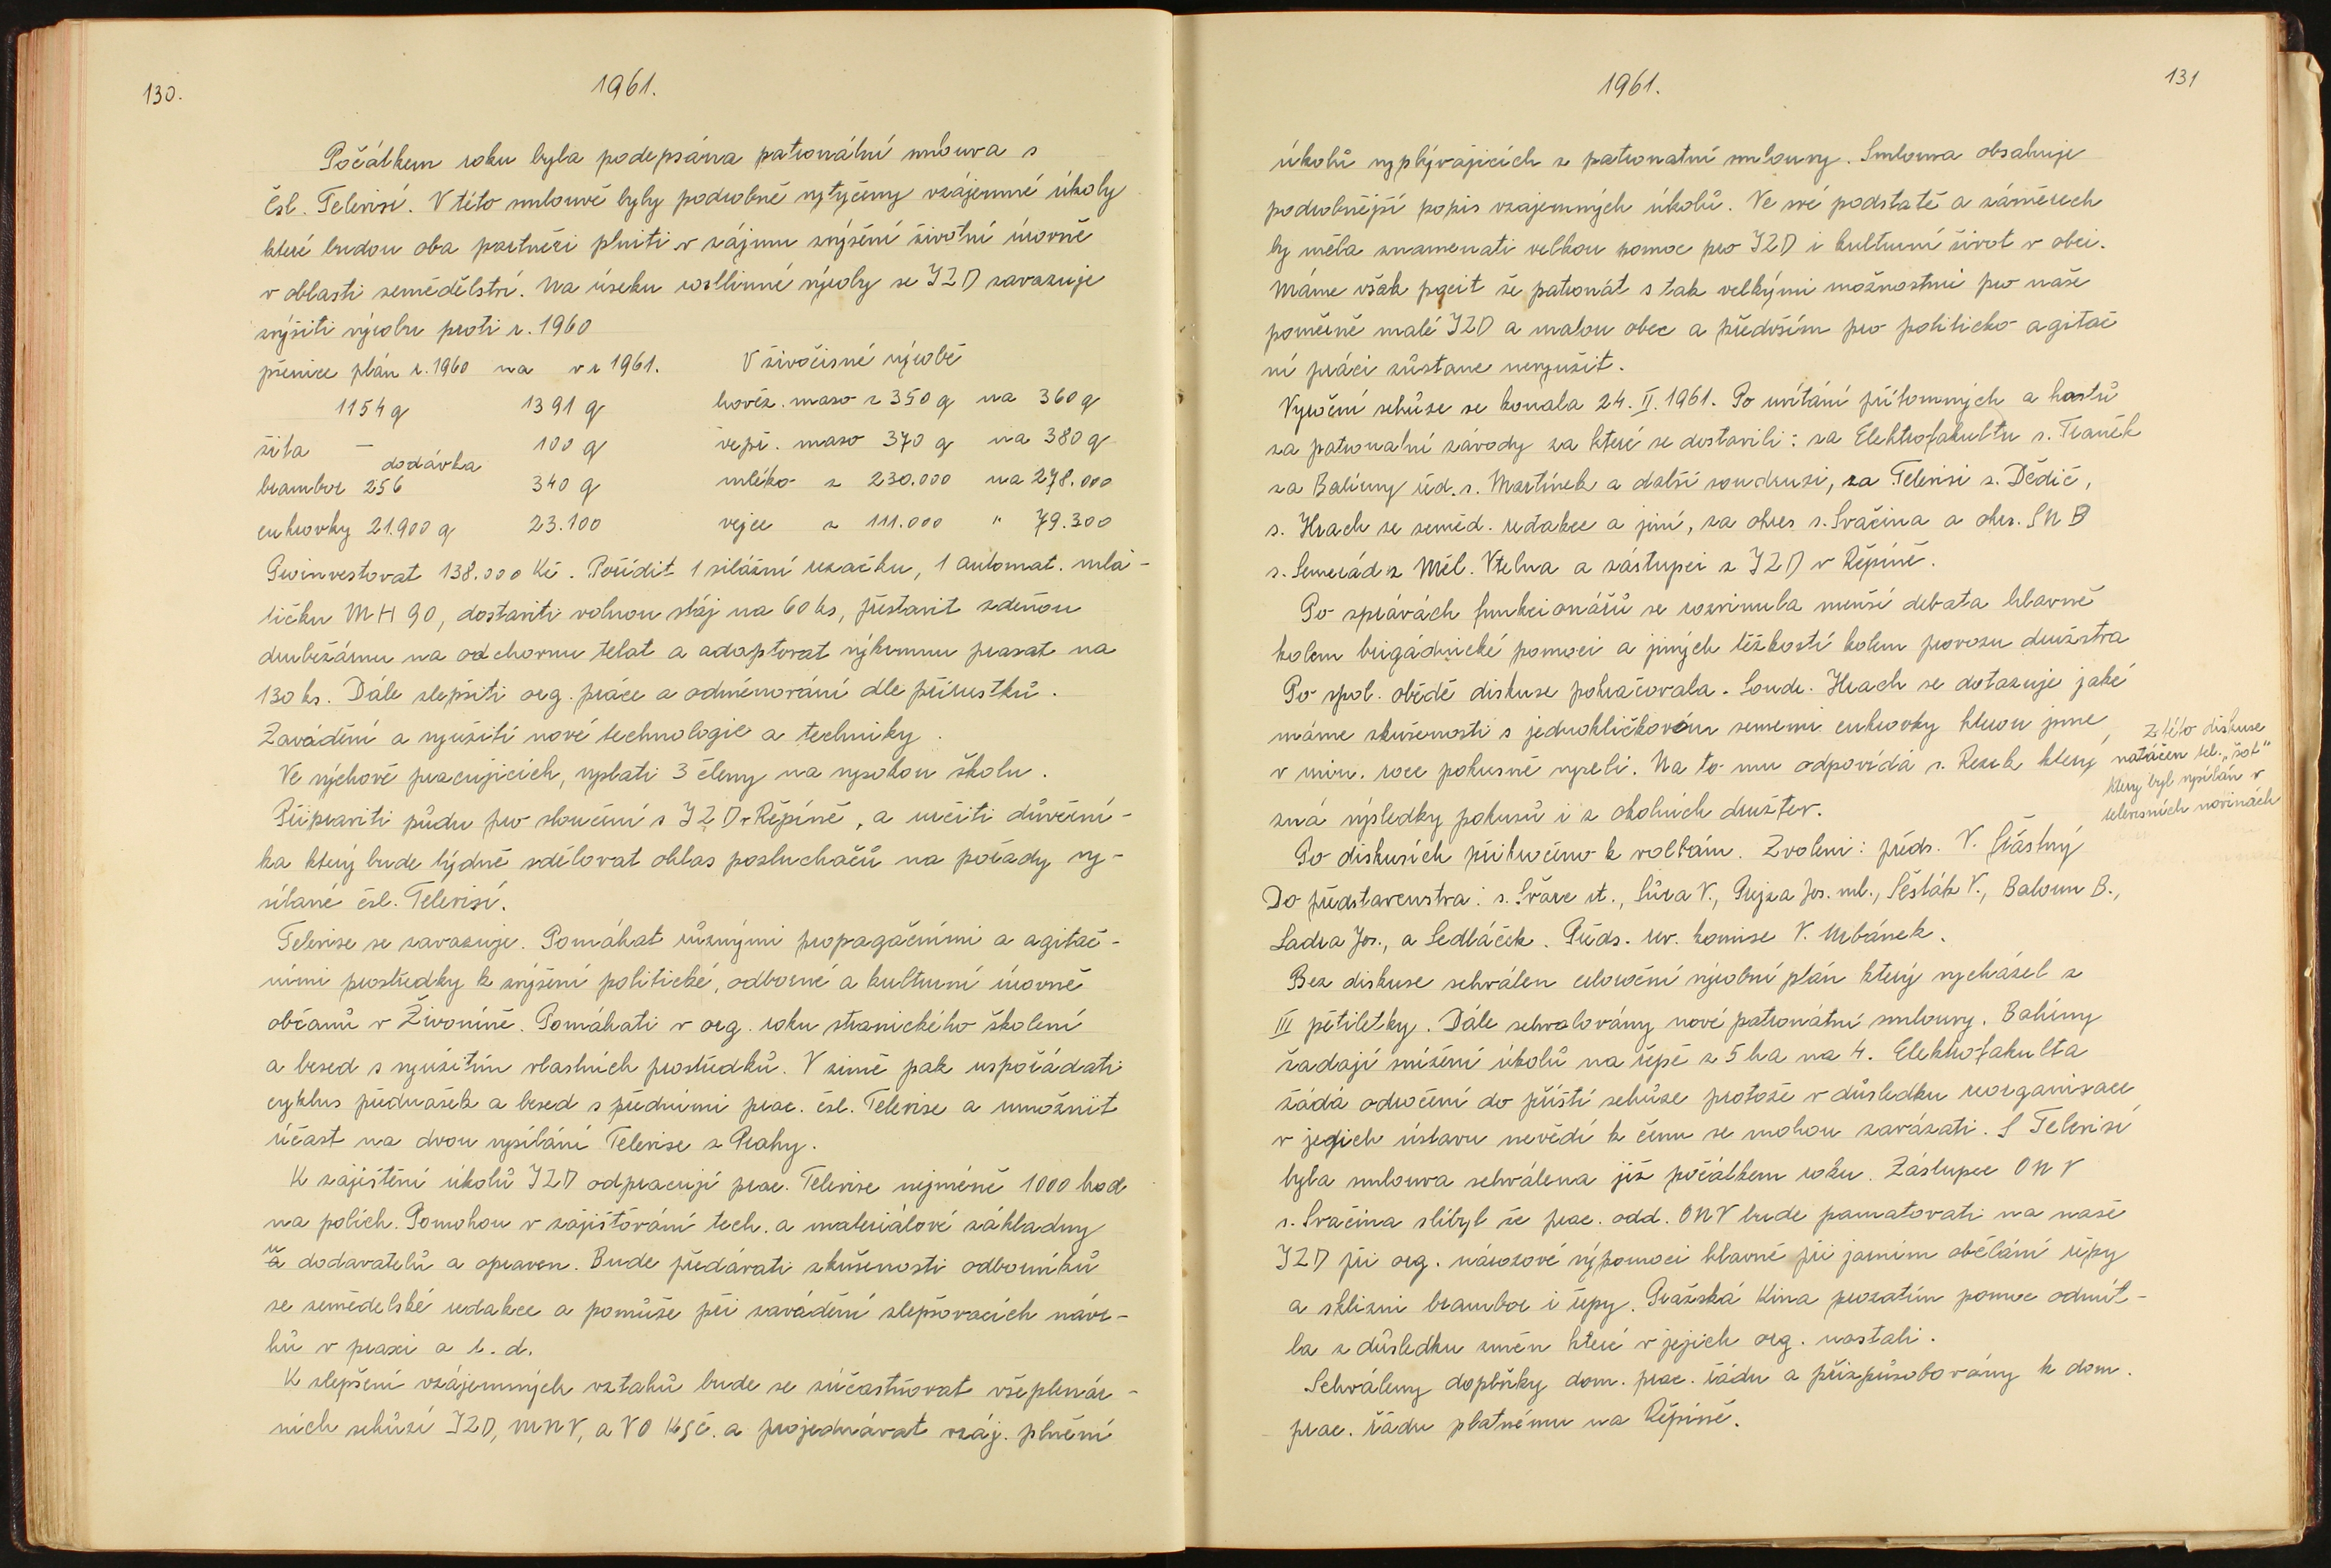 130.
1961.
Počátkem roku byla podepsána patronátní smlouva s
Čsl. Televisí. V této smlouvě byly podrobně vytyčeny vzájemné úkoly
které budou oba partneři plniti v zájmu zvýšení životní úrovně
v oblasti zemědělství. Na úseku rostlinné výroby se JZD zavazuje
zvýšiti výrobu proti r. 1960
pšenice plán r. 1960 na v r 1961. V živočisné výrobě
1154 q 1391 q hověz. maso z 350 q na 360 q
žita — 100 q vepř. maso 370 q na 380 q
dodávka
brambor 256 340 q mléko z 230.000 na 278.000
cukrovky 21.900 q 23.100 vejce z 111.000 " 79.300
Proinvestovat 138.000 Kč. Pořídit 1 silážní řezačku, 1 automat. mla-
tičku MH 90, dostaviti volnou stáj na 60 ks, přestavit zděnou
drubežárnu na odchovnu telat a adoptovat výkrmnu prasat na
130 ks. Dále zlepšiti org. práce a odměnování dle přírustků.
Zavádění a využití nové technologie a techniky.
Ve výchově pracujicích, vyslati 3 členy na vysokou školu.
Připraviti půdu pro sloučení s JZD v Řepíně, a určiti důvěrní-
ka který bude týdně sdělovat ohlas posluchačů na pořady vy-
sílané čsl. Televisí.
Televise se zavazuje. Pomáhat růsnými propagačními a agitač-
ními prostředky k zvýšení politické, odborné a kulturní úrovně
občanů v Živoníně. Pomáhati v org. roku stranického školení
a besed s využitím vlastních prostředků. V zimě pak uspořádati
cyklus přednášek a besed s předními prac. čsl. Televise a umožnit
účast na dvou vysílání Televise z Prahy.
K zajištění úkolů JZD odpracují prac. Televise nejméně 1000 hod
na polích. Pomohou v zajišťování tech. a materiálové základny
u dodavatelů a opraven. Bude předávati zkušenosti odborníků
ze zemědelské redakce a pomůže při zavádění zlepšovacích návr-
hů v praxi a t. d.
K zlepšení vzájemných vztahů bude se zúčastňovat všeplenár-
ních schůzí JZD, MNV, a VO KSČ. a projednávat vzáj. plnění
1961.
131
úkolů vyplývajících z patronatní smlouvy. Smlouva obsahuje
podrobnější popis vzajemných úkolů. Ve své podstatě a záměrech
by měla znamenati velkou pomoc pro JZD i kulturní život v obci.
Máme však pocit že patronát s tak velkými možnostmi pro naše
poměrně malé JZD a malou obec a především pro politicko agitač
ní práci zůstane nevyužit.
Výroční schůze se konala 24. II. 1961. Po uvítání přítomných a hostů
za patronatní závody za které se dostavili: za Elektrofakultu s. Traněk
za Balírny řed. s. Martínek a další soudruzi, za Televisi s. Dědič,
s. Hrach ze zeměd. redakce a jiní, za okres s. Svačina a okr. SNB
s. Semerád z Měl. Vtelna a zástupci z JZD v Řepíně.
Po zprávách funkcionářů se rozvinula menší debata hlavně
kolem brigádnické pomoci a jiných těžkostí kolem provozu družstva
Po spol. obědě diskuse pokračovala. Soudr. Hrach se dotazuje jaké
máme zkušenosti s jednoklíčkovém semenu cukrovky kterou jsme
v min. roce pokusně vyseli. Na to mu odpovídá s. Rezek který
zná výsledky pokusů i z okolních družstev.
Z této diskuse
natáčen tel. „šot"
který byl vysílán v
televisních novinách
Po diskusích přikročeno k volbám. Zvoleni: předs. V. Šťástný
Do představenstva: s. Švárc st., Sůra V., Prejza Jos. ml., Šesták V., Baloun B.,
Ladra Jos., a Sedláček. Předs. rev. komise V. Urbánek.
Bez diskuse schválen celoroční výrobní plán který vycházel z
III pětiletky. Dále schvalovány nové patronátní smlouvy. Balírny
žadají snížení úkolů na řepě z 5 ha na 4. Elektrofakulta
žádá odročení do příští schůze protože v důsledku reorganisace
v jejich ústavu nevědí k čemu se mohou zavázati. S Televisí
byla smlouva schválena již počátkem roku. Zástupce ONV
s. Svačina slíbyl že prac. odd. ONV bude pamatovati na naše
JZD při org. nárazové výpomoci hlavně při jarním obělání řepy
a sklizni brambor i řepy. Pražská Kina prozatím pomoc odmít-
la z důsledku změn které v jejich org. nastali.
Schváleny doplňky dom. prac. řádu a přizpůsobovány k dom.
prac. řádu platnému na Řepíně.